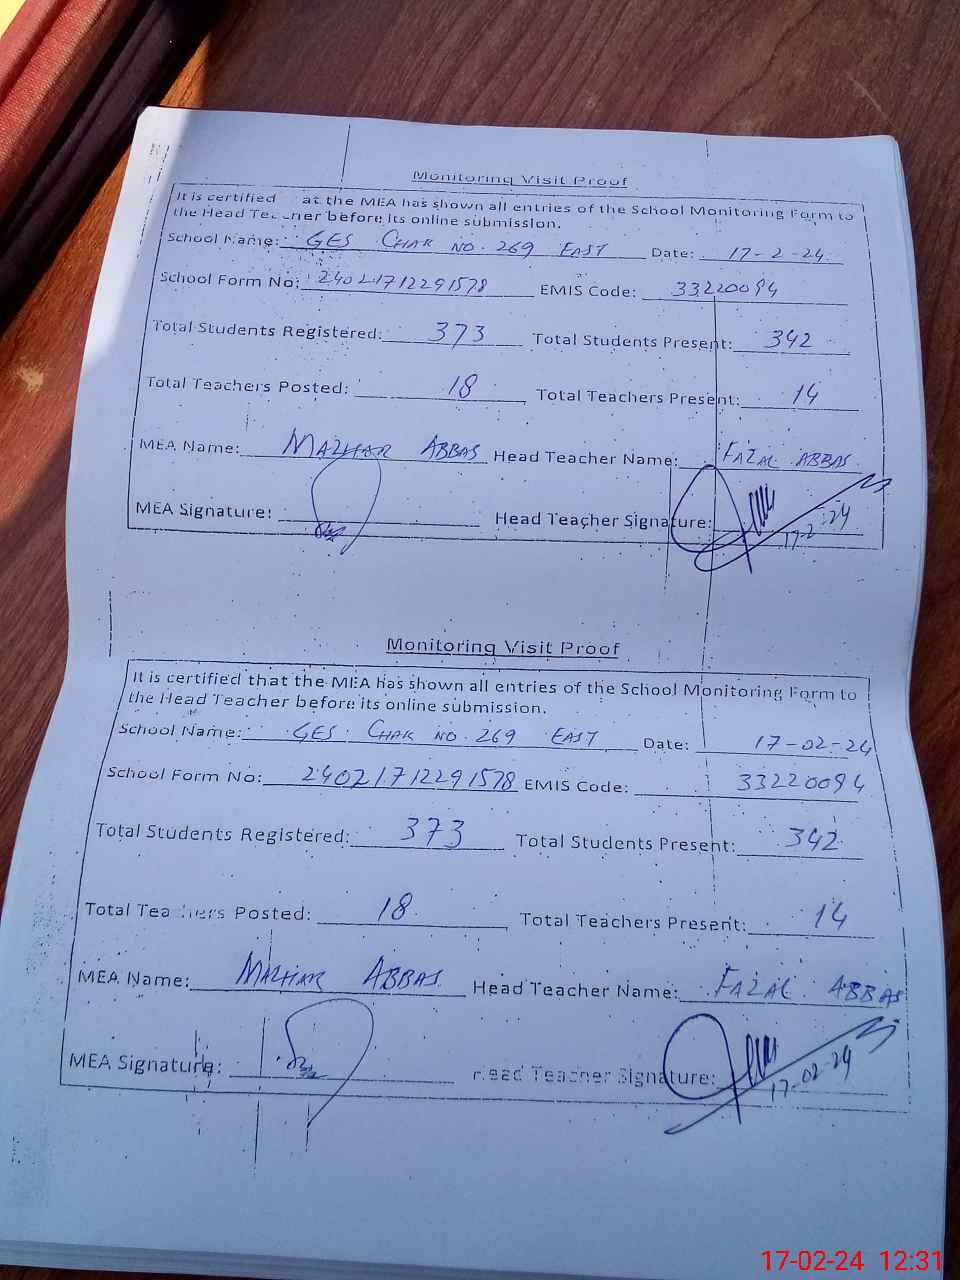 Monitoring Visit Proof
It is certified at the MEA has shown all entries of the School Monitoring Form to
the Head Teacher before its online submission.
School Name: GES CHAK NO. 269 EAST Date: 17-2-24
School Form No: 24021712291578 EMIS Code: 33220094
Total Students Registered: 373 Total Students Present: 342
Total Teachers Posted: 18 Total Teachers Present: 14
MEA Name: MAZHAR ABBAS Head Teacher Name: FAZAL ABBAS
MEA Signature: Head Teacher Signature:
17-2-24
Monitoring Visit Proof
It is certified that the MEA has shown all entries of the School Monitoring Form to
the Head Teacher before its online submission.
School Name: GES CHAK NO. 269 EAST Date: 17-02-24
School Form No: 24021712291578 EMIS Code: 33220094
Total Students Registered: 373 Total Students Present: 342
Total Teachers Posted: 18 Total Teachers Present: 14
MEA Name: MAZHAR ABBAS Head Teacher Name: FAZAL ABBAS
MEA Signature: Head Teacher Signature:
17-02-24
17-02-24 12:31